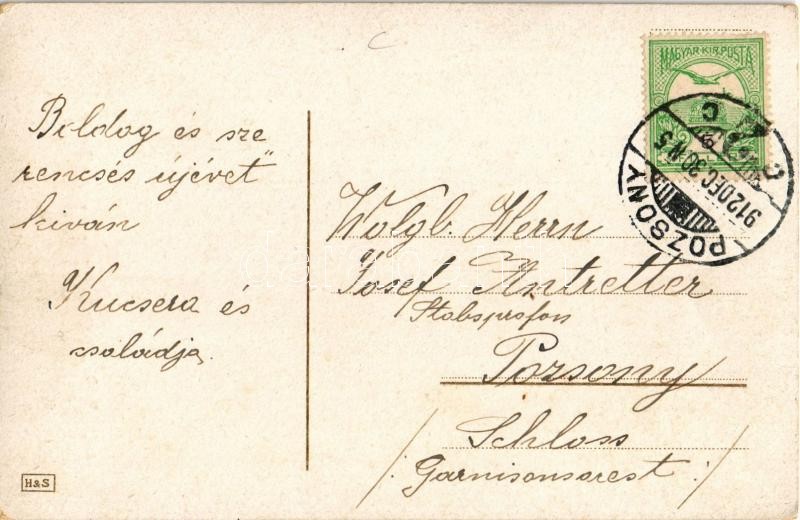 Boldog és sze
rencsés újévet
kiván
Kucsera és
családja.
MAGYAR KIR. POSTA
POZSONY
912 DEC 30 N5
C
Wolgb. Herrn
Josef Antretter
Stabsprofon
Pozsony
Schloss
/: Garnisonsarest :/
H&S